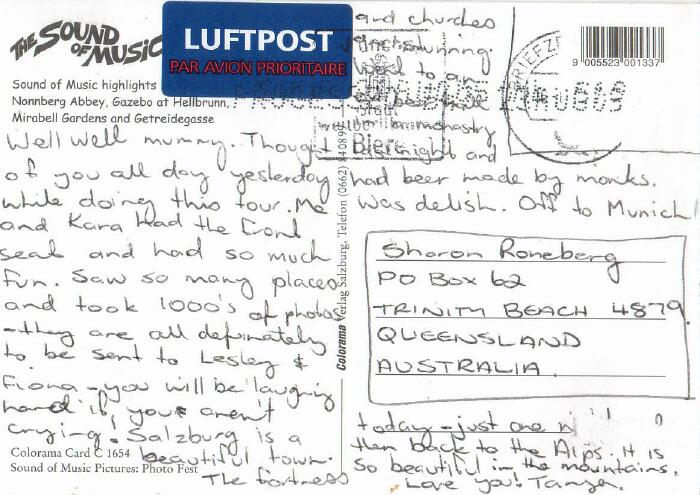 THE SOUND
OF MUSIC
Sound of Music highlights
Nonnberg Abbey, Gazebo at Hellbrunn,
Mirabell Gardens and Getreidegasse
LUFTPOST
PAR AVION PRIORITAIRE
9 005523 001337
BRIEFZ
Bier
Well well mummy. Thought
of you all day yesterday
while doing this tour. Me
and Kara had the front
seat and had so much
fun. Saw so many places
and took 1000's of photos
- they are all definately
to be sent to Lesley &
Fiona - you will be laughing
hard if you aren't
crying! Salzburg is a
beautiful town.
The fortress
and churches
stunning.
to an
monastry
last night and
had beer made by monks.
Was delish. Off to Munich
today - just one
then back to the Alps. It is
so beautiful in the mountains.
Love you! Tanya.
Sharon Roneberg
PO Box 62
TRINITY BEACH 4879
QUEENSLAND
AUSTRALIA
Colorama Verlag Salzburg, Telefon (0662) 84089
Colorama Card C 1654
Sound of Music Pictures: Photo Fest